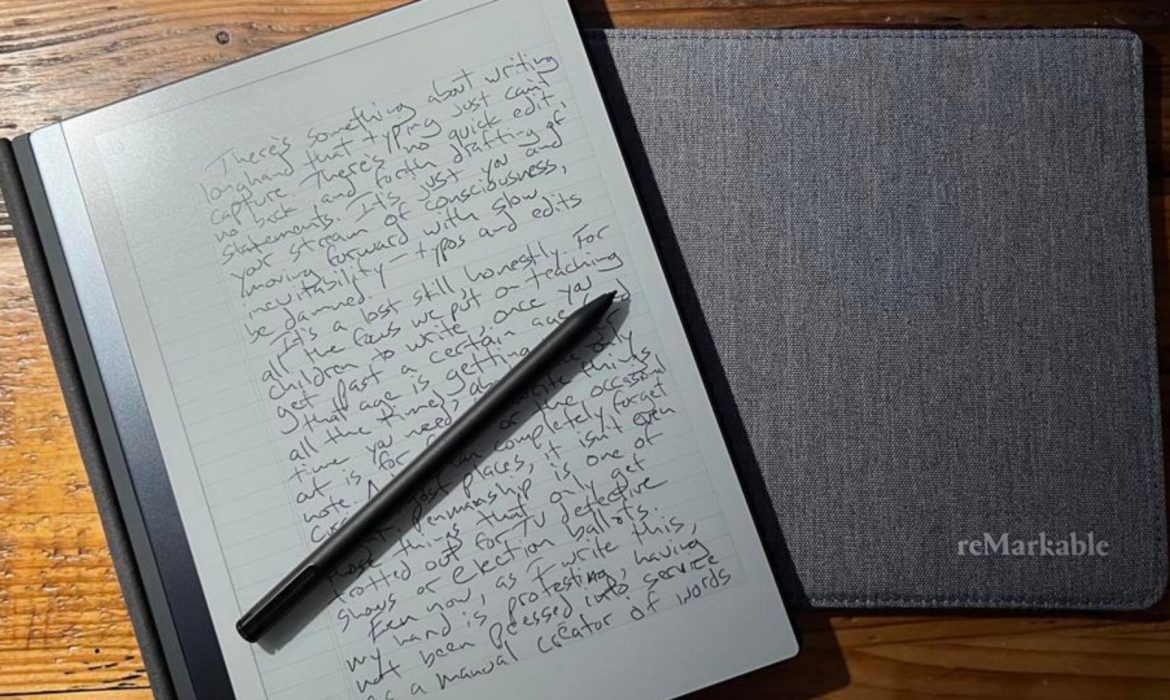 There's something about writing
longhand that typing just can't
capture. There's no quick edit,
no back and forth drafting of
statements. It's just you and
your stream of consciousness,
moving forward with slow
inevitability — typos and edits
be damned.
It's a lost still, honestly. For
all the focus we put on teaching
children to write, once you
get past a certain age
that age is getting
all the time), only
time you need write things
out is for or the occasional
note. can completely forget
most places, it isn't even
penmanship is one of
those things that only get
trotted out for TV detective
shows or election ballots.
Even now, as I write this,
my hand is protesting, having
not been pressed into service
as a manual creator of words
reMarkable